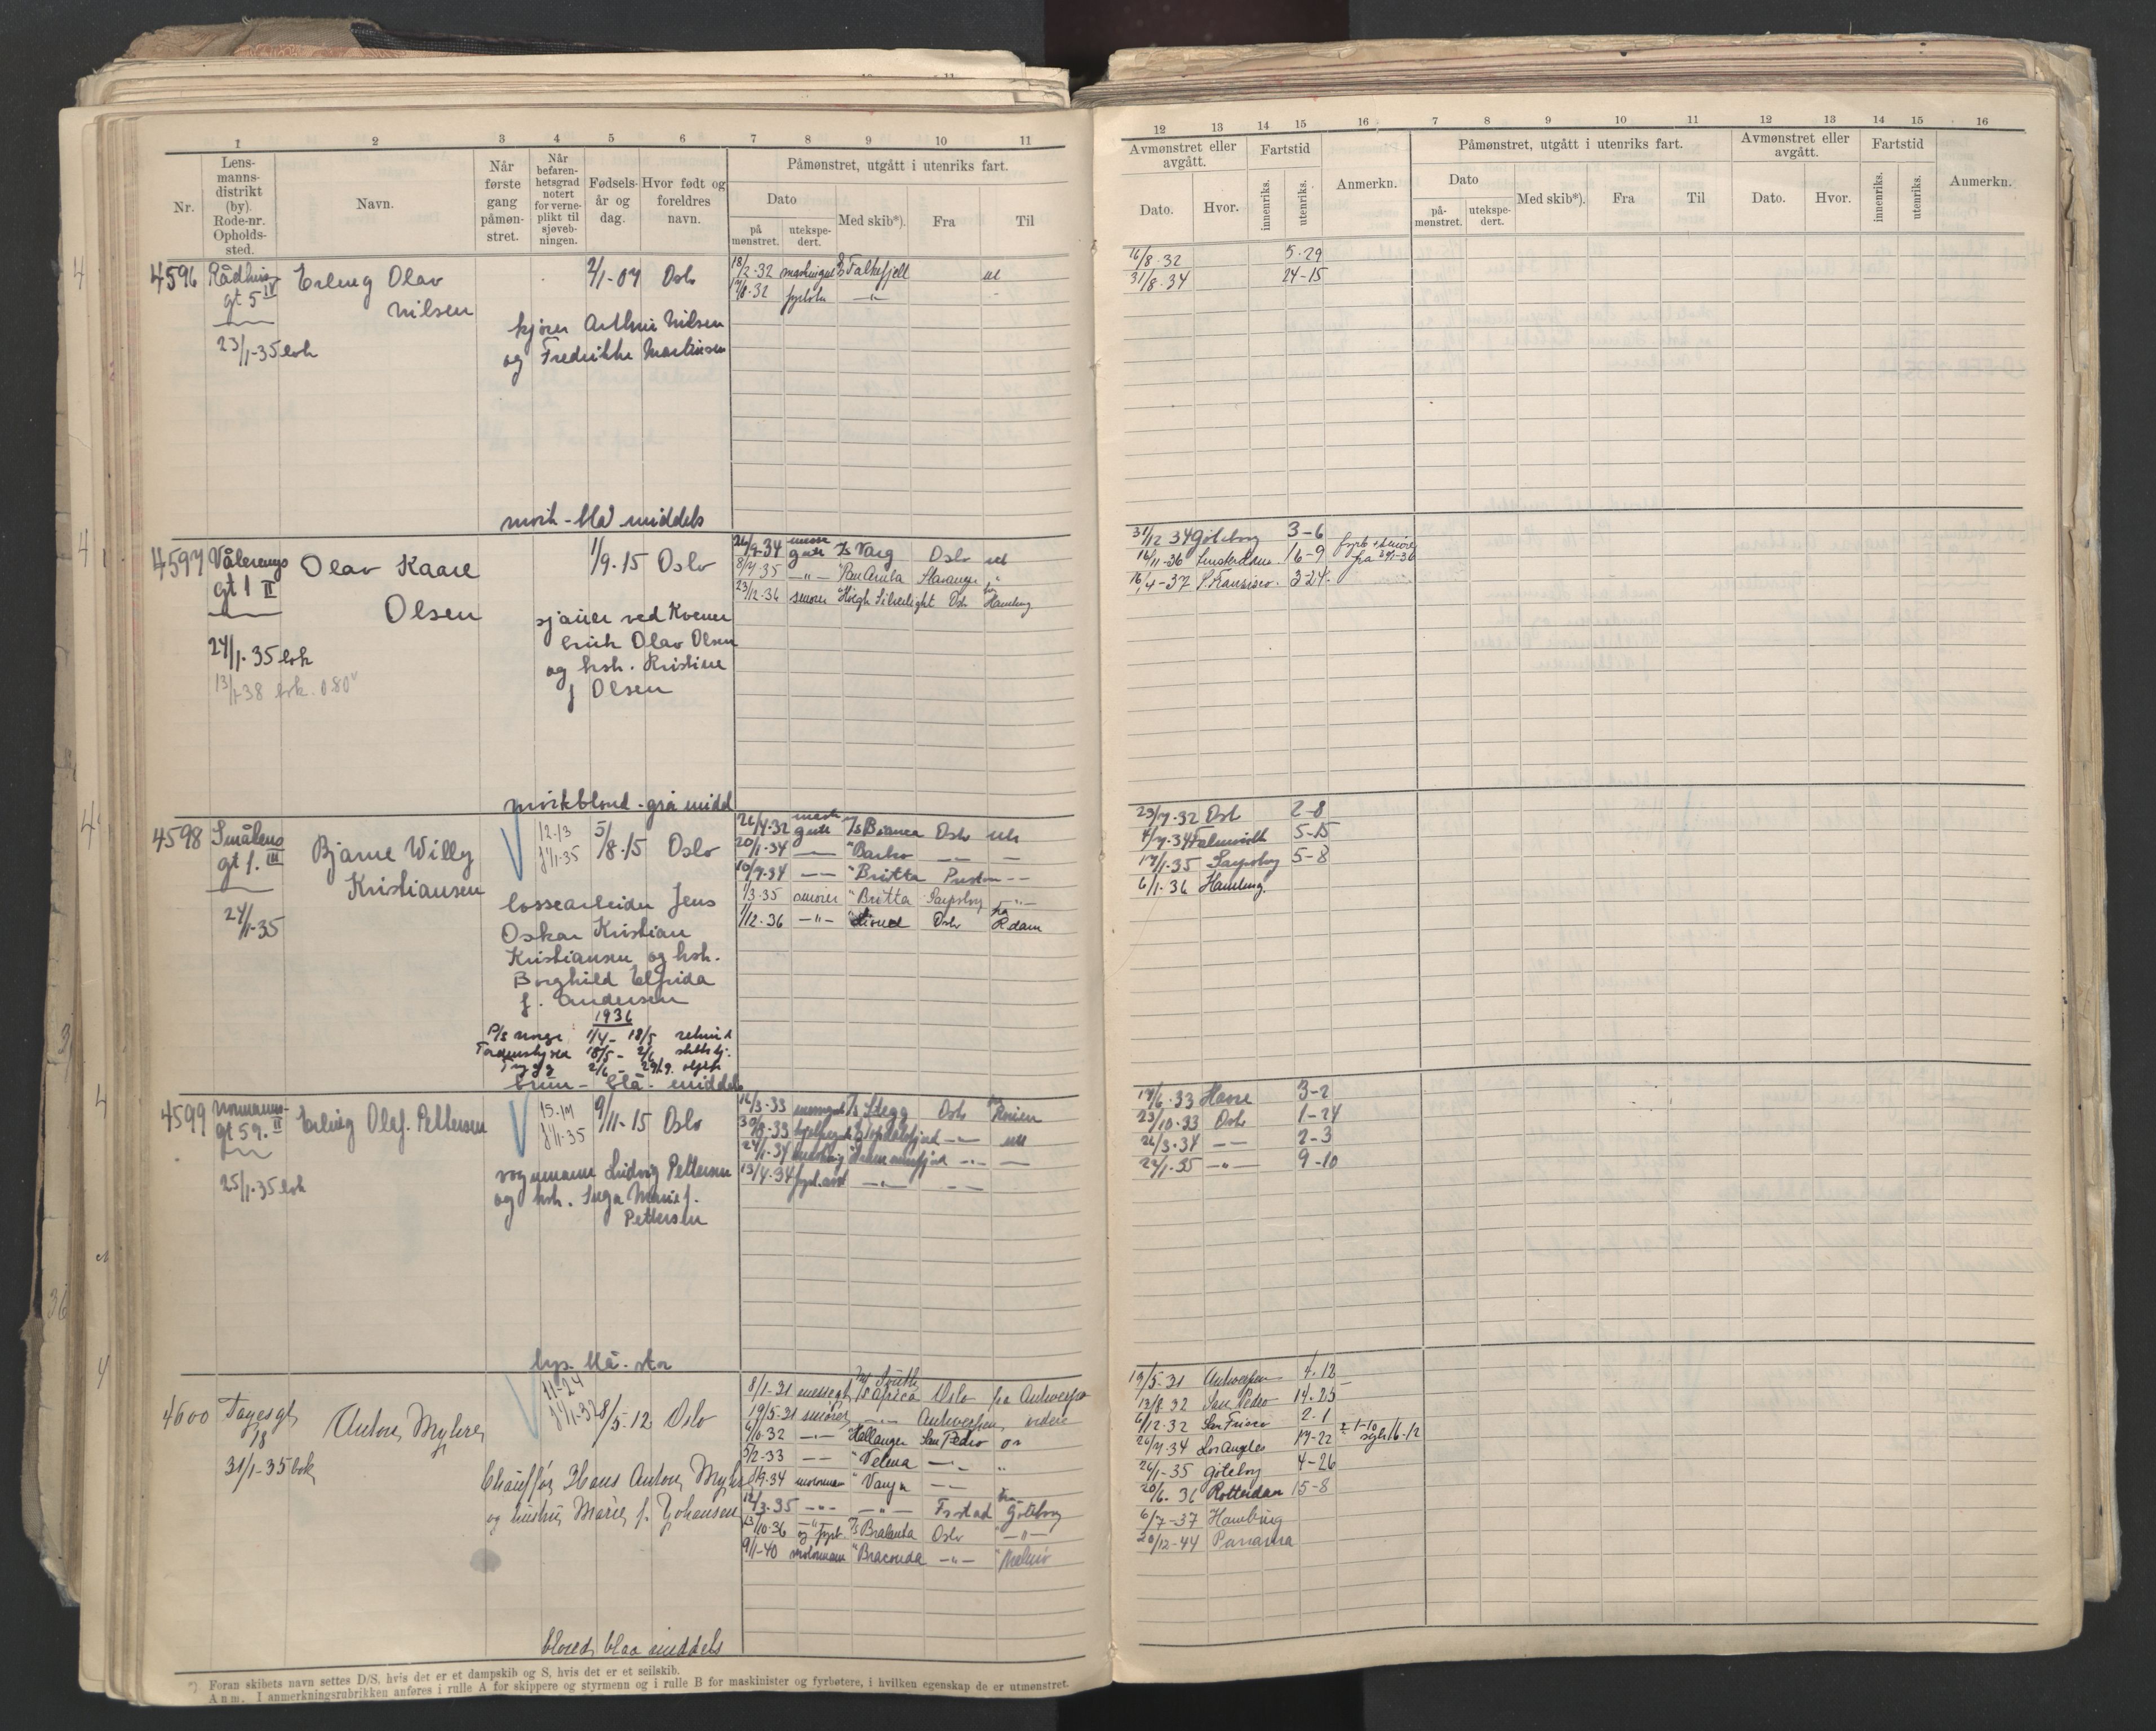 1 2 3 4 5 6 7 8 9 10 11
Nr.
Lens-
manns-
distrikt
(by).
Rode-nr.
Opholds-
sted.
Navn.
Når
første
gang
påmøn-
stret.
Når
befaren-
hetsgrad
notert
for verne-
plikt til
sjøveb-
ningen.
Fødsels-
år og
dag.
Hvor født og
foreldres
navn.
Påmønstret, utgått i utenriks fart.
Dato
på
mønstret.
utekspe-
dert.
Med skib*).
Fra
Til
4596 Rådhus
gt 5 IV
23/1-35 bok
Erling Olav
Nilsen
2/1-07 Oslo
kjører Arthur Nilsen
og Fredrikke Martinsen
mørk-blå middels
18/2-32 D/S Falkefjell ut
4597 Vålerengs
gt 1 II
24/1-35 bok
13/1-38 bok. 0.80
Olav Kaare
Olsen
1/9.15 Oslo
sjauer ved Kvener
Erich Olav Olsen
og hsh. Kristine
f Olsen
mørkblond-grå midd
26/9-34 messe
gutt Varg Oslo ut
8/7-35 -"- Pan Aruba Stavanger "
23/12-36 smører Høegh Silverlight Oslo fra Hamburg
4598 Smålens
gt 1. III
24/1-35
Bjarne Willy
Kristiansen
12-13
f 1/1-35
5/8.15 Oslo
lossearbeider Jens
Oskar Kristian
Kristiansen og hsh.
Borghild Elfrida
f. Andersen
1936
P/S Norge 1/4 - 18/5
Tordenskjold 18/5 - 2/6
Trygg 2/6 -
brun - blå - middels
21/4-32 gutt Bianca Oslo ut
20/1-34 " Barbro
10/7-34 "Britta Preston
1/3.35 smører "Britta Sarpsborg -"-
1/12.36 -"- Oslo fra R.dam
4599 Normanns-
gt 59. II
25/1-35 bok
Erling Olaf. Pettersen
15-17
f 1/1-35
9/11-15 Oslo
vognmann Ludvig Pettersen
og hsh. Inga Marie f.
Pettersen
lys. blå. stor
16/3-33 Stegg Oslo
30/8-33 ut
24/1-34
13/4-34 fyrb.
4600 Tøyengt
18
31/1-35 bok
Anton Myhre
11-24
f 1/1-32
8/5-12 Oslo
Chauffør Hans Anton Myhre
og hustru Marie f. Johansen
blond blaa middels
8/1-31 messegt South
Africa Oslo fra Antwerpen
19/5-31 smører -"- Antwerpen videre
6/10.32 -"- "Hellanger San Pedro
5/2-33 " Velma -"- "
9.34 motormann " Vanja
12/3.35 -"- -"- Fr.stad fra Göteborg
13/10-36 og fyrb. Bralanta Oslo -"-
9/1-40 motormann "Braconda -"- " Malmö
*) Foran skibets navn settes D/S, hvis det er et dampskib og S, hvis det er et seilskib.
Anm. I anmerkningsrubrikken anføres i rulle A for skippere og styrmenn og i rulle B for maskinister og fyrbøtere, i hvilken egenskap de er utmønstret.
12 13 14 15 16 7 8 9 10 11 12 13 14 15 16
Avmønstret eller
avgått.
Dato.
Hvor.
Fartstid
innenriks.
utenriks.
Anmerkn.
Påmønstret, utgått i utenriks fart.
Dato
på-
mønstret.
utekspe-
dert.
Med skib*).
Fra
Til
Avmønstret eller
avgått.
Dato.
Hvor.
Fartstid
innenriks.
utenriks.
Anmerkn.
16/8-32 5-29
31/8-34 24-15
31/12 34 Göteborg 3-6
16/11-36 Amsterdam 16-9
16/4-37 S. Fransisco. 3-24
23/7-32 Oslo 2-8
4/7-34 Falmouth 5-15
17/1-35 Sarpsborg 5-8
6/1-36 Hamburg.
17/6-33 Havre 3-2
23/10-33 Oslo 1-24
26/3-34 -"- 2-3
22/1-35 -"- 9-10
19/5-31 Antwerpen 4.12
13/8-32 San Pedro 14.25
6/12-32 2-1
20/7-34 Los Angeles 17-22
26/1-35 Göteborg 4-26
20/6.36 Rotterdam 15-8
6/7-37 Hamburg
20/12-44 Panama